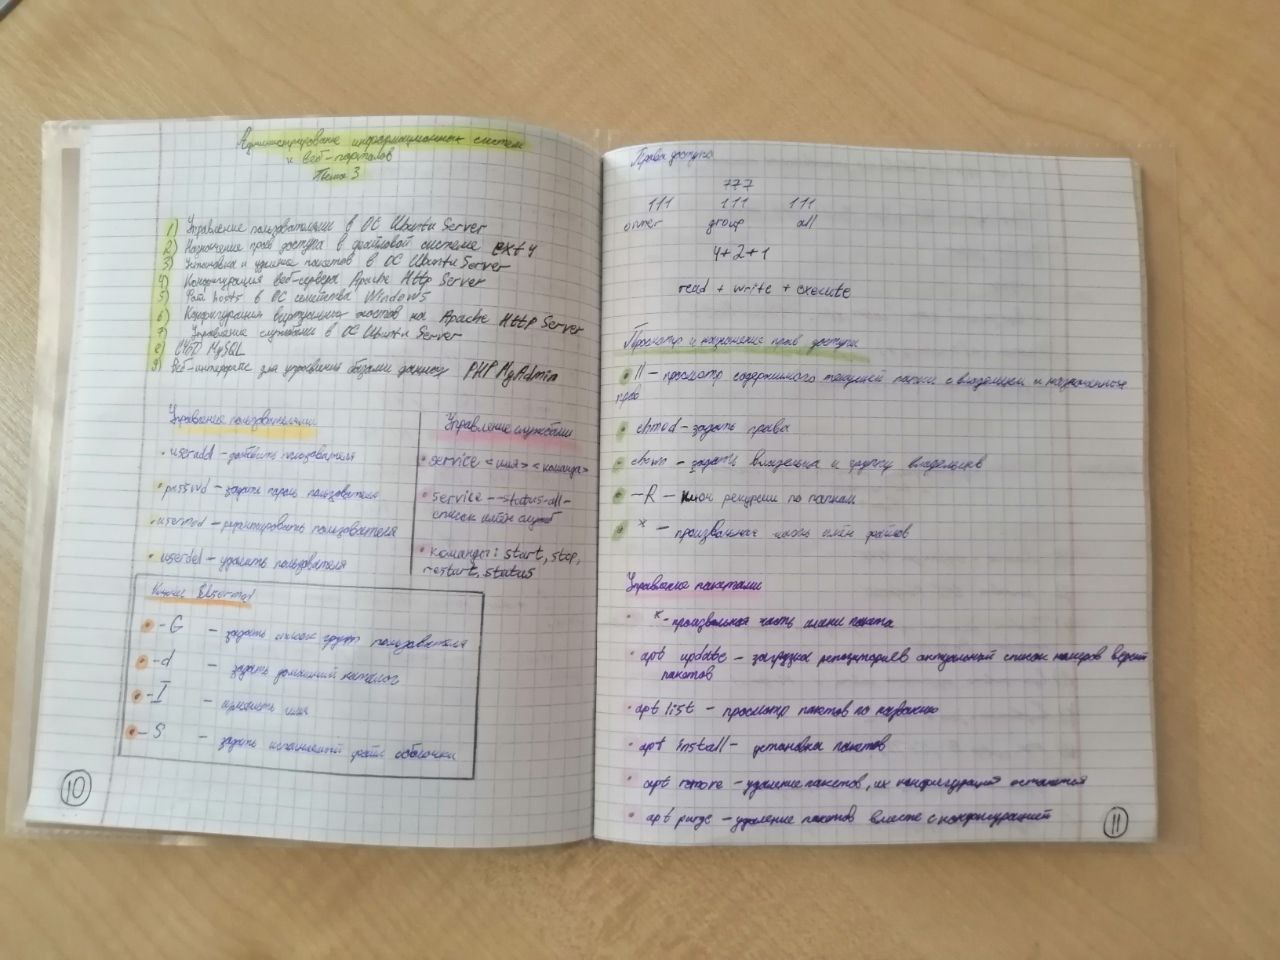 Администрирование информационных систем
и веб-порталов
Тема 3
1) Управление пользователями в ОС Ubuntu Server
2) Назначение прав доступа в файловой системе ext4
3) Установка и удаление пакетов в ОС Ubuntu Server
4) Конфигурация веб-сервера Apache Http Server
5) Файл hosts в ОС семейства Windows
6) Конфигурация виртуальных хостов на Apache Http Server
7) Управление службами в ОС Ubuntu Server
8) СУБД MySQL
9) Веб-интерфейс для управления базами данных PHP MyAdmin
Управление пользователями
• useradd - добавить пользователя
• passwd - задать пароль пользователю
• usermod - редактировать пользователя
• userdel - удалить пользователя
Управление службами
• service <имя> <команда>
• service --status-all -
список имён служб
• команды: start, stop,
restart, status
Ключи usermod
• -G - задать список групп пользователя
• -d - задать домашний каталог
• -I - изменить имя
• -S - задать исполняемый файл оболочки
10
Права доступа
777
111 111 111
owner group all
4+2+1
read + write + execute
Просмотр и назначение прав доступа
• ll - просмотр содержимого текущей папки с владельцем и назначенных
прав
• chmod - задать права
• chown - задать владельца и группу владельцев
• -R - ключ рекурсии по папкам
• * - произвольная часть имён файлов
Управление пакетами
• * - произвольная часть имени пакета
• apt update - загрузка репозиториев актуальный список номеров версий
пакетов
• apt list - просмотр пакетов по названию
• apt install - установка пакетов
• apt remove - удаление пакетов, их конфигураций остаются
• apt purge - удаление пакетов вместе с конфигурацией
11